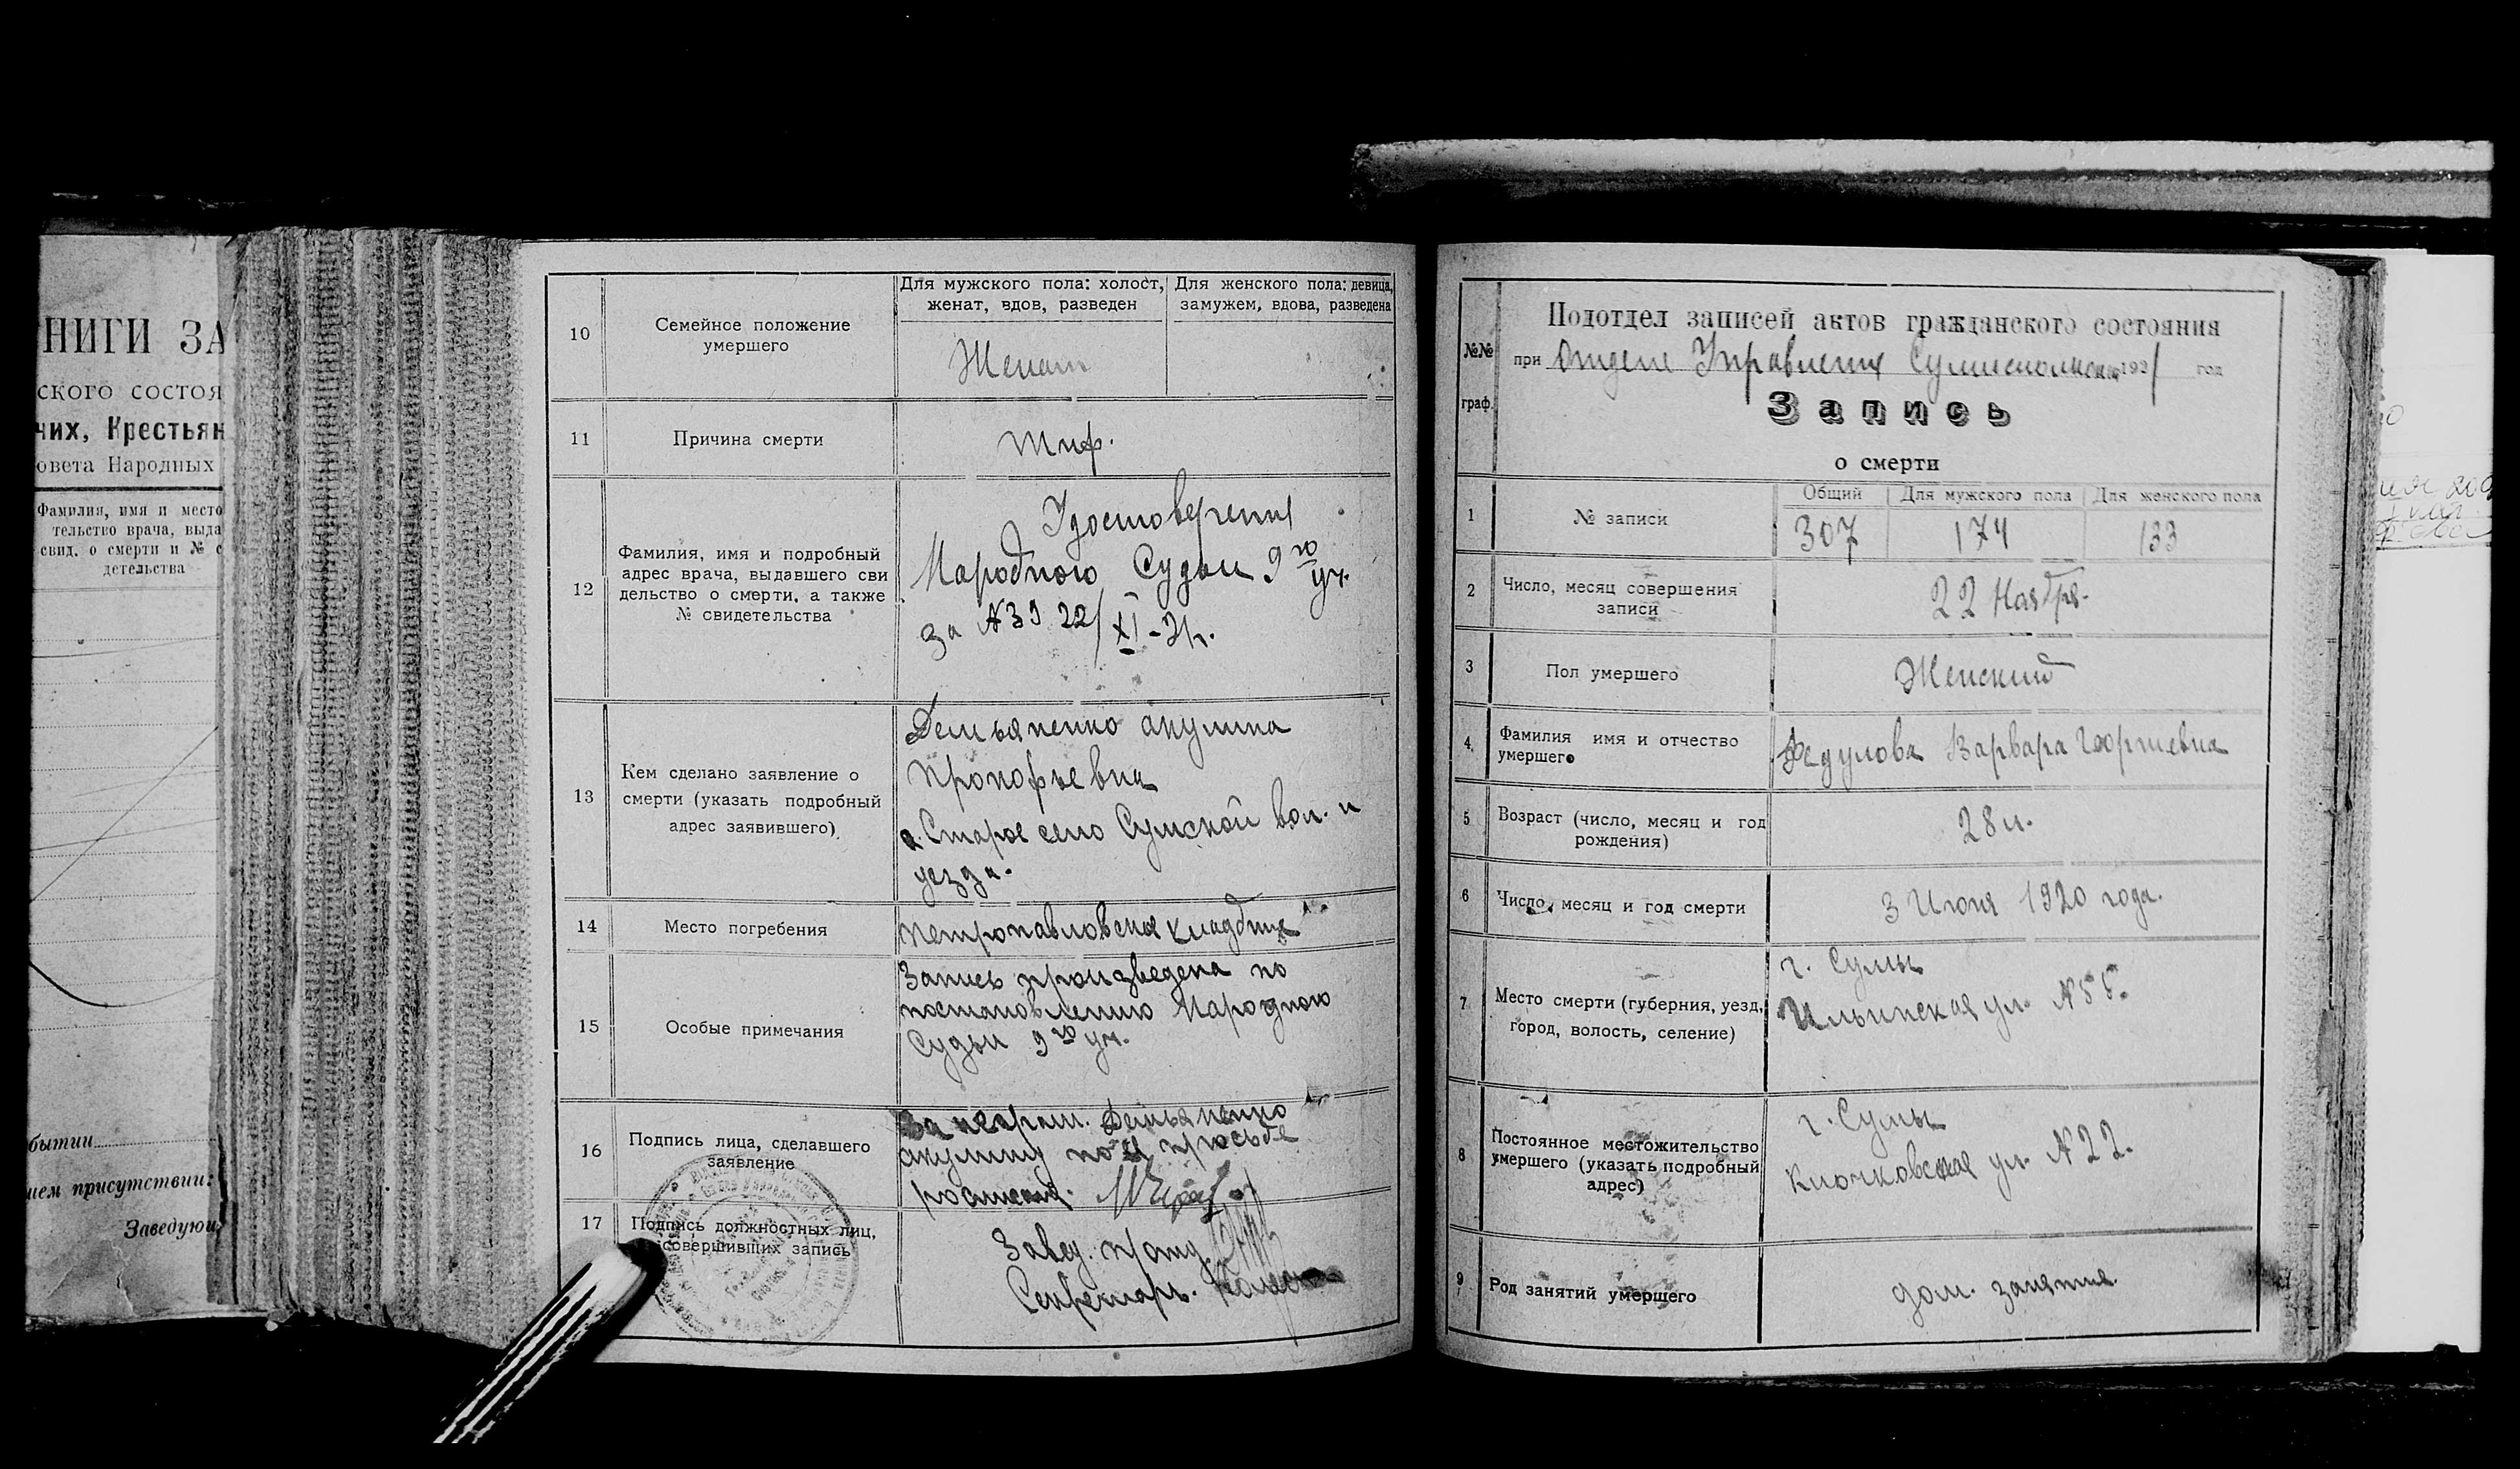 НИГИ ЗА
ского состоя
чих, Крестьян
овета Народных
Фамилия, имя и место
тельство врача, выда
свид. о смерти и № с
детельства
бытии
ием присутствии:
Заведующ
10
Семейное положение
умершего
Для мужского пола: холост,
женат, вдов, разведен
Для женского пола: девица,
замужем, вдова, разведена
Женат
11
Причина смерти
Тиф.
12
Фамилия, имя и подробный
адрес врача, выдавшего сви
дельство о смерти, а также
№ свидетельства
Удостоверения
Народного Судьи 9го уч.
за № 39 22/XI-21г.
13
Кем сделано заявление о
смерти (указать подробный
адрес заявившего)
Демьяненко Акулина
Прокофьевна
с. Старое село Сумской вол. и
уезда.
14
Место погребения
Петропавловское кладбище
15
Особые примечания
Запись произведена по
постановлению Народного
Судьи 9го уч.
16
Подпись лица, сделавшего
заявление
За неграм. Демьяненко
Акулину по её просьбе
17
Подпись должностных лиц,
совершивших запись
Завед. п/отд
Секретарь.
№№
граф.
Подотдел записей актов гражданского состояния
при Отделе Управления Сумисполкома 1921 год
Запись
о смерти
1
№ записи
Общий
Для мужского пола
Для женского пола
307
174
133
2
Число, месяц совершения
записи
22 Ноября.
3
Пол умершего
Женский
4
Фамилия имя и отчество
умершего
Федулова Варвара Георгиевна
5
Возраст (число, месяц и год
рождения)
28 л.
6
Число, месяц и год смерти
3 Июня 1920 года.
7
Место смерти (губерния, уезд,
город, волость, селение)
г. Сумы
Ильинская ул. № 55.
8
Постоянное местожительство
умершего (указать подробный
адрес)
г. Сумы
Клочковская ул. № 22.
9
Род занятий умершего
дом. занятия.